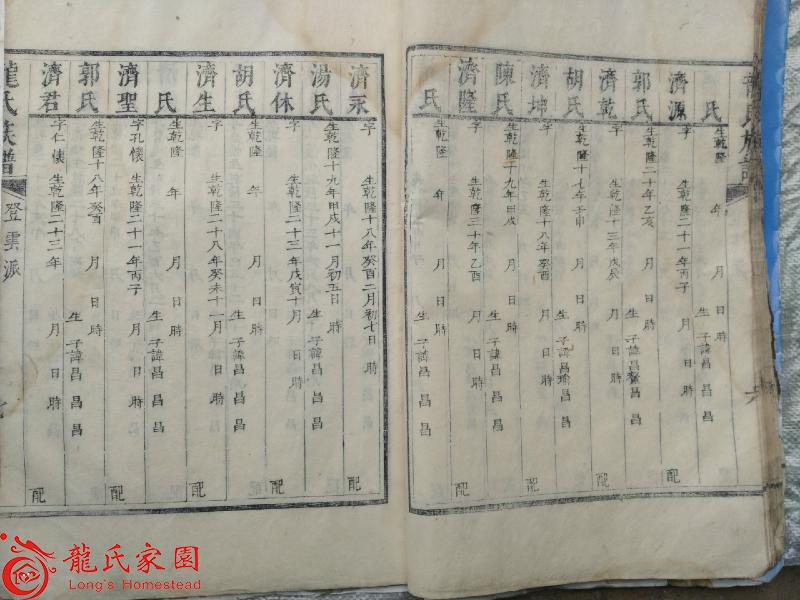 龍氏族譜
氏 生乾隆 年 月 日 時 生 子諱昌 昌 昌
濟源 字 生乾隆二十一年丙子 月 日 時 配
郭氏 生乾隆二十年乙亥 月 日 時 生 子諱昌 昌 昌
濟乾 字 生乾隆十三年戊辰 月 日 時 配
胡氏 生乾隆十七年壬申 月 日 時 生 子諱昌瑜昌 昌
濟坤 字 生乾隆十八年癸酉 月 日 時 配
陳氏 生乾隆十九年甲戌 月 日 時 生 子諱昌 昌 昌
濟隆 字 生乾隆三十年乙酉 月 日 時 配
氏 生乾隆 年 月 日 時 生 子諱昌 昌 昌
濟永 字 生乾隆十八年癸酉二月初七日 時 配
湯氏 生乾隆十九年甲戌十一月初五日 時 生 子諱昌 昌 昌
濟休 字 生乾隆二十三年戊寅十月 日 時 配
胡氏 生乾隆 年 月 日 時 生 子諱昌 昌 昌
濟生 字 生乾隆二十八年癸未十一月 日 時 配
氏 生乾隆 年 月 日 時 生 子諱昌 昌 昌
濟聖 字孔懷 生乾隆二十一年丙子 月 日 時 配
郭氏 生乾隆十八年癸酉 月 日 時 生 子諱昌 昌 昌
濟君 字仁懷 生乾隆二十三年 月 日 時 配
龍氏族譜 登雲派
龍氏家園
Long's Homestead